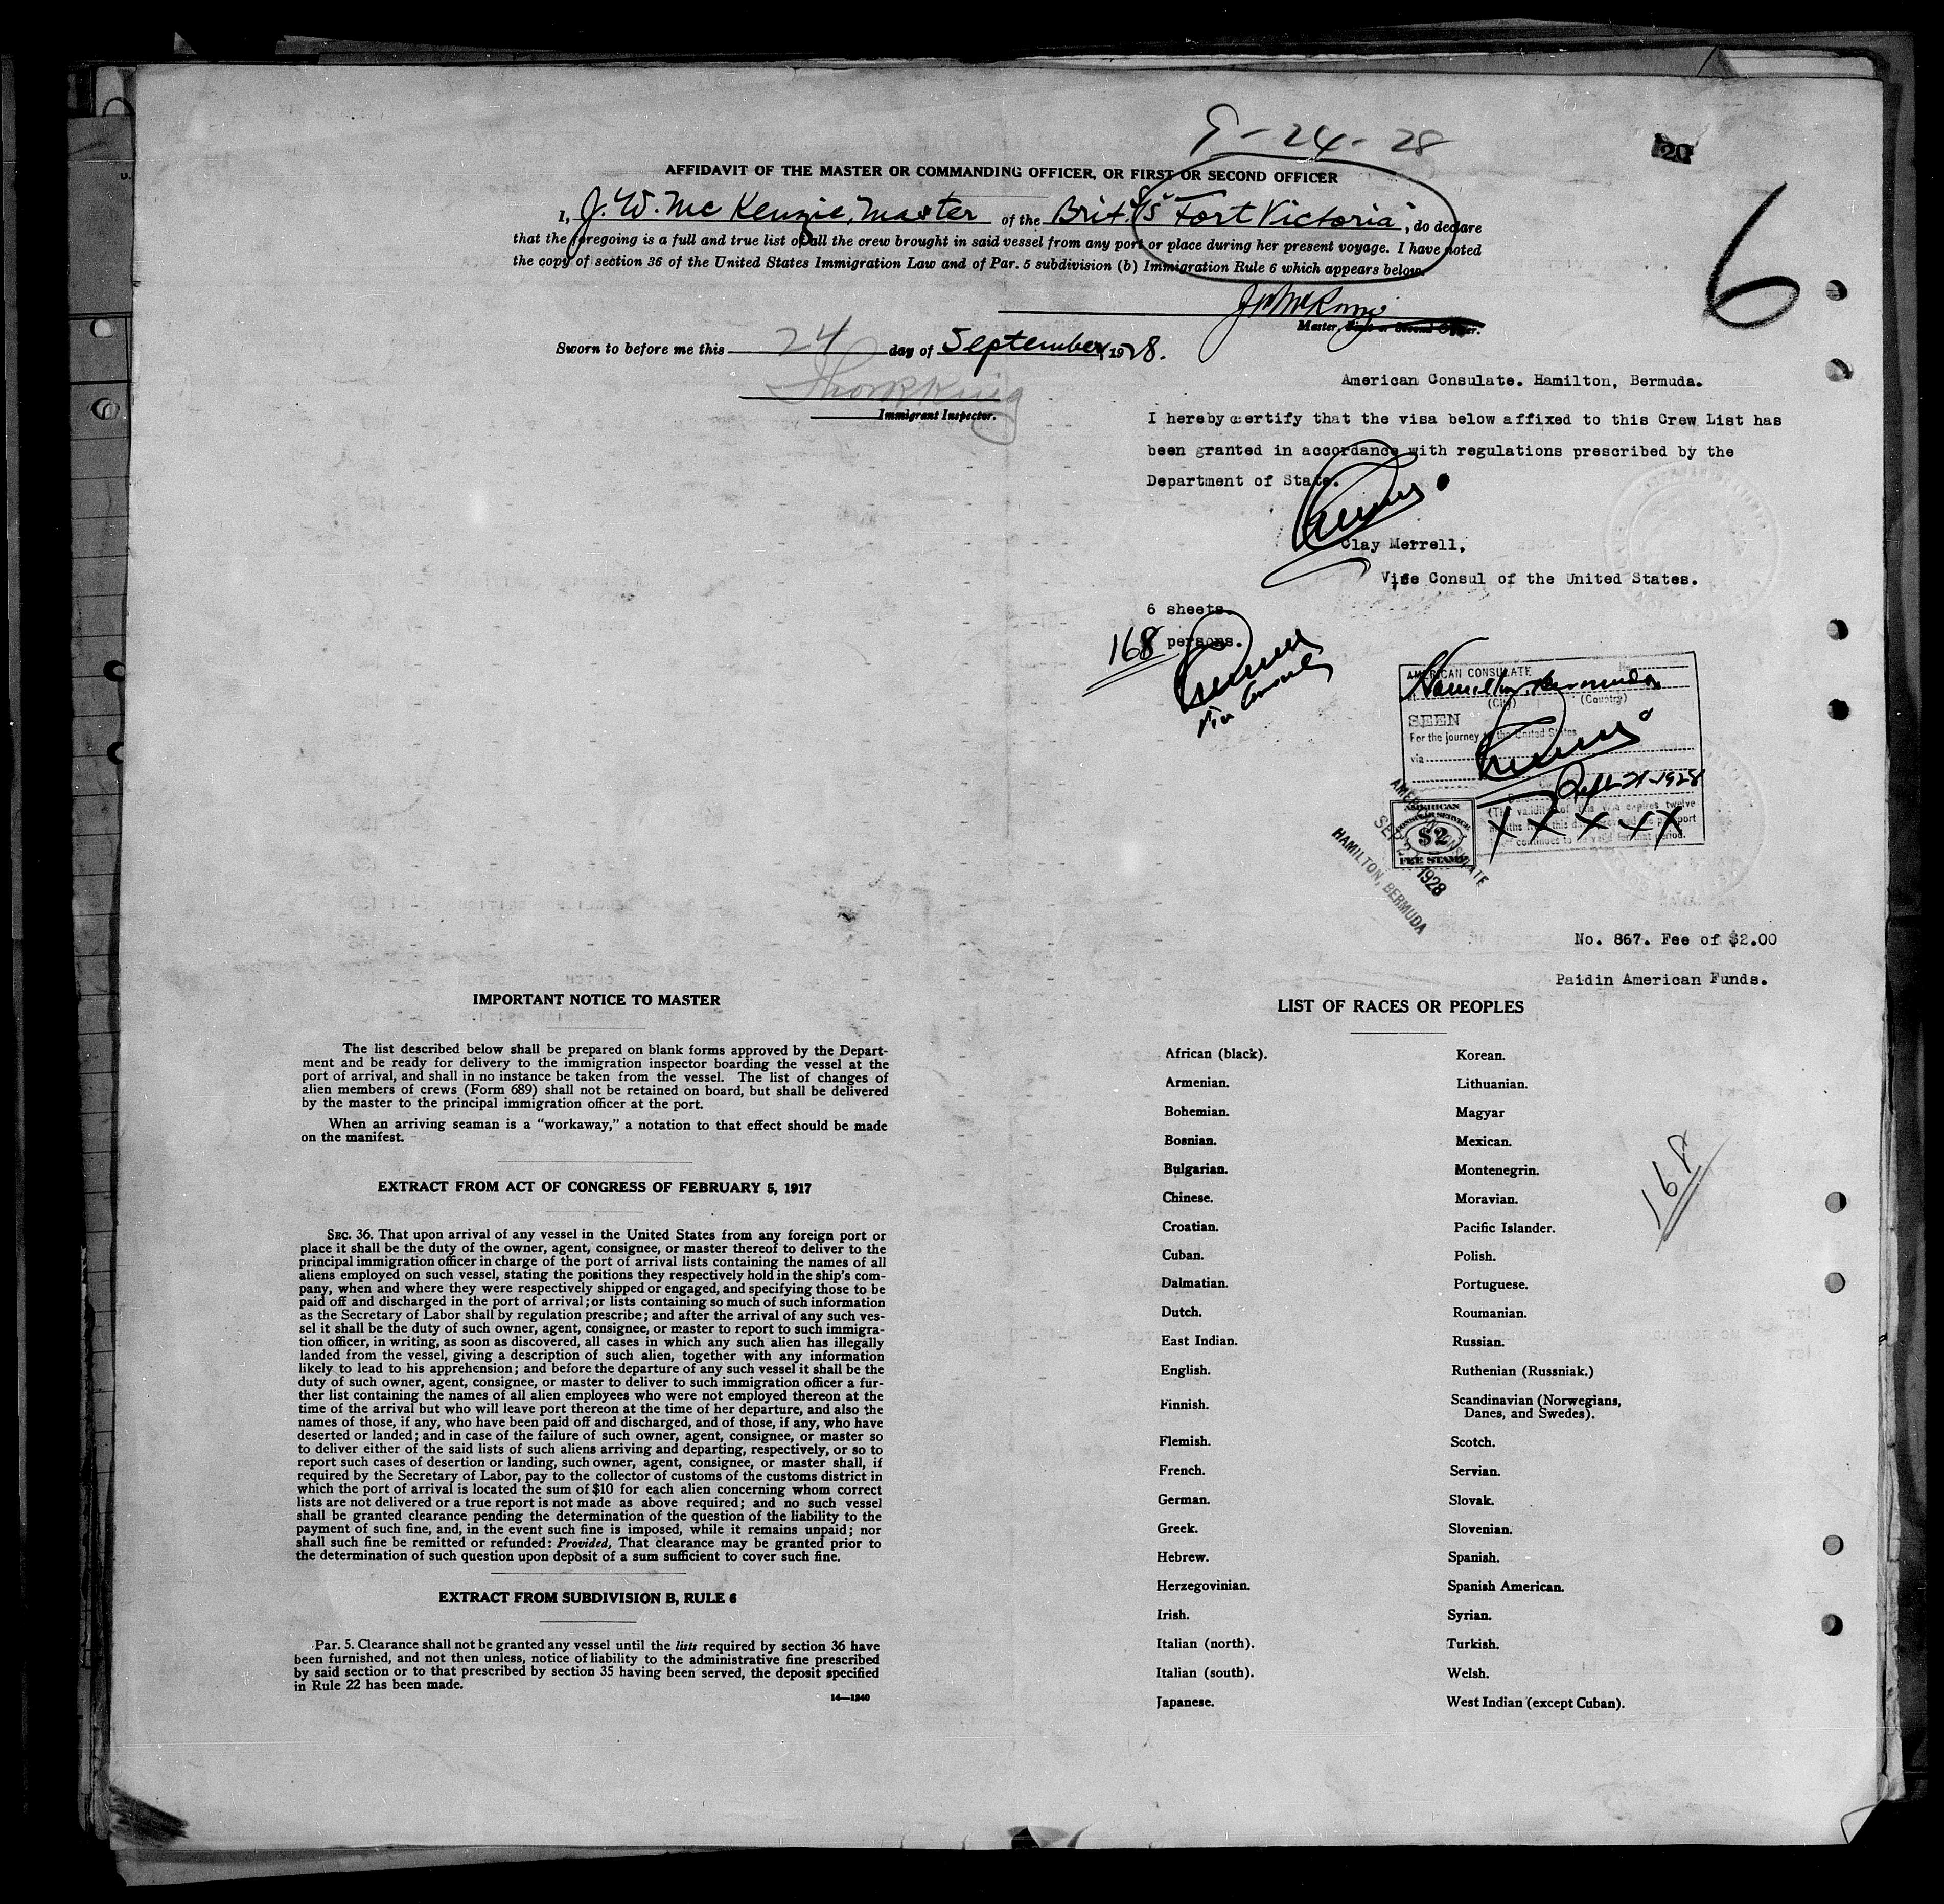 9-24-28
20
6
AFFIDAVIT OF THE MASTER OR COMMANDING OFFICER, OR FIRST OR SECOND OFFICER
I, J. W. McKenzie, Master of the Brit. S/S "Fort Victoria", do declare
that the foregoing is a full and true list of all the crew brought in said vessel from any port or place during her present voyage. I have noted
the copy of section 36 of the United States Immigration Law and of Par. 5 subdivision (b) Immigration Rule 6 which appears below.
Master, First or Second Officer.
Sworn to before me this 24 day of September, 1928.
Immigrant Inspector.
American Consulate. Hamilton, Bermuda.
I hereby certify that the visa below affixed to this Crew List has
been granted in accordance with regulations prescribed by the
Department of State.
Clay Merrell,
Vice Consul of the United States.
6 sheets.
168 persons.
AMERICAN CONSULATE
Hamilton, Bermuda
(City) (Country)
SEEN
For the journey to the United States
via
Sept 21-1928
(The validity of this visa expires twelve
months from this date provided the passport
continues to be valid for that period.
X X X X X
AMERICAN
CONSULAR SERVICE
$2
FEE STAMP
AMERICAN CONSULATE
SEP 21 1928
HAMILTON, BERMUDA
No. 867. Fee of $2.00
Paidin American Funds.
IMPORTANT NOTICE TO MASTER
The list described below shall be prepared on blank forms approved by the Depart-
ment and be ready for delivery to the immigration inspector boarding the vessel at the
port of arrival, and shall in no instance be taken from the vessel. The list of changes of
alien members of crews (Form 689) shall not be retained on board, but shall be delivered
by the master to the principal immigration officer at the port.
When an arriving seaman is a "workaway," a notation to that effect should be made
on the manifest.
EXTRACT FROM ACT OF CONGRESS OF FEBRUARY 5, 1917
SEC. 36. That upon arrival of any vessel in the United States from any foreign port or
place it shall be the duty of the owner, agent, consignee, or master thereof to deliver to the
principal immigration officer in charge of the port of arrival lists containing the names of all
aliens employed on such vessel, stating the positions they respectively hold in the ship's com-
pany, when and where they were respectively shipped or engaged, and specifying those to be
paid off and discharged in the port of arrival; or lists containing so much of such information
as the Secretary of Labor shall by regulation prescribe; and after the arrival of any such ves-
sel it shall be the duty of such owner, agent, consignee, or master to report to such immigra-
tion officer, in writing, as soon as discovered, all cases in which any such alien has illegally
landed from the vessel, giving a description of such alien, together with any information
likely to lead to his apprehension; and before the departure of any such vessel it shall be the
duty of such owner, agent, consignee, or master to deliver to such immigration officer a fur-
ther list containing the names of all alien employees who were not employed thereon at the
time of the arrival but who will leave port thereon at the time of her departure, and also the
names of those, if any, who have been paid off and discharged, and of those, if any, who have
deserted or landed; and in case of the failure of such owner, agent, consignee, or master so
to deliver either of the said lists of such aliens arriving and departing, respectively, or so to
report such cases of desertion or landing, such owner, agent, consignee, or master shall, if
required by the Secretary of Labor, pay to the collector of customs of the customs district in
which the port of arrival is located the sum of $10 for each alien concerning whom correct
lists are not delivered or a true report is not made as above required; and no such vessel
shall be granted clearance pending the determination of the question of the liability to the
payment of such fine, and, in the event such fine is imposed, while it remains unpaid; nor
shall such fine be remitted or refunded: Provided, That clearance may be granted prior to
the determination of such question upon deposit of a sum sufficient to cover such fine.
EXTRACT FROM SUBDIVISION B, RULE 6
Par. 5. Clearance shall not be granted any vessel until the lists required by section 36 have
been furnished, and not then unless, notice of liability to the administrative fine prescribed
by said section or to that prescribed by section 35 having been served, the deposit specified
in Rule 22 has been made.
14—1240
LIST OF RACES OR PEOPLES
African (black).
Armenian.
Bohemian.
Bosnian.
Bulgarian.
Chinese.
Croatian.
Cuban.
Dalmatian.
Dutch.
East Indian.
English.
Finnish.
Flemish.
French.
German.
Greek.
Hebrew.
Herzegovinian.
Irish.
Italian (north).
Italian (south).
Japanese.
Korean.
Lithuanian.
Magyar
Mexican.
Montenegrin.
Moravian.
Pacific Islander.
Polish.
Portuguese.
Roumanian.
Russian.
Ruthenian (Russniak.)
Scandinavian (Norwegians,
Danes, and Swedes).
Scotch.
Servian.
Slovak.
Slovenian.
Spanish.
Spanish American.
Syrian.
Turkish.
Welsh.
West Indian (except Cuban).
168